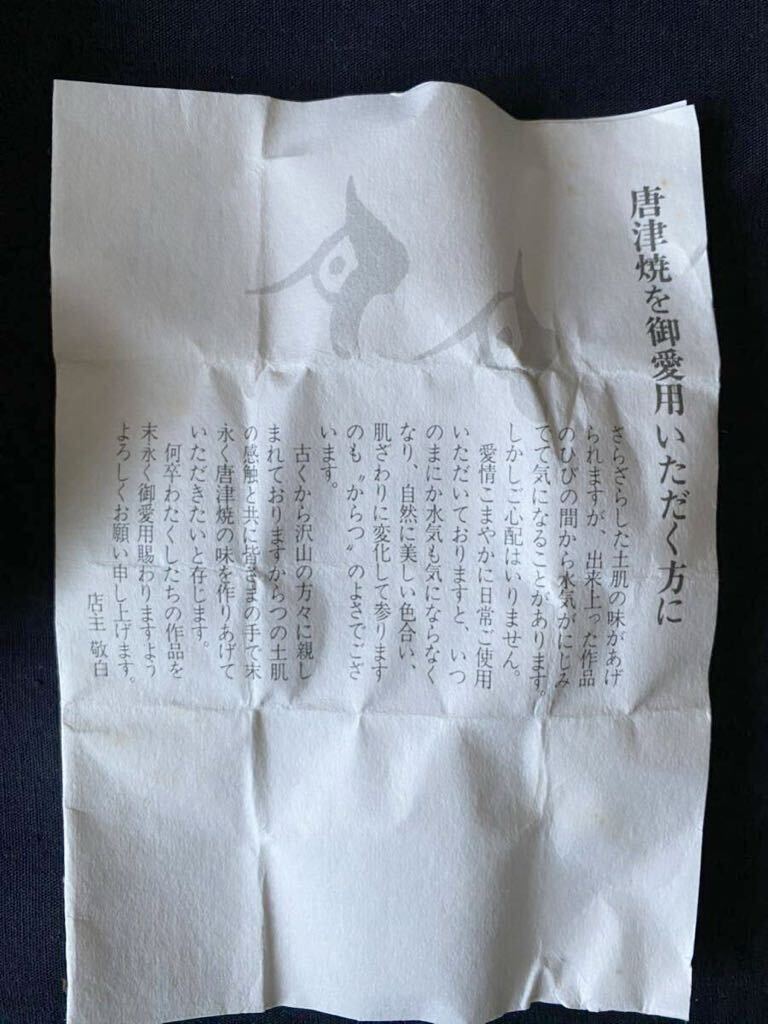 唐津焼を御愛用いただく方に
さらざらした土肌の味があげ
られますが、出来上った作品
のひびの間から水気がにじみ
でて気になることがあります。
しかしご心配はいりません。
愛情こまやかに日常ご使用
いただいておりますと、いつ
のまにか水気も気にならなく
なり、自然に美しい色合い、
肌ざわりに変化して参ります
のも〝からつ〟のよさでござ
います。
古くから沢山の方々に親し
まれておりますからつの土肌
の感触と共に皆さまの手で末
永く唐津焼の味を作りあげて
いただきたいと存じます。
何卒わたくしたちの作品を
末永く御愛用賜わりますよう
よろしくお願い申し上げます。
店主 敬白